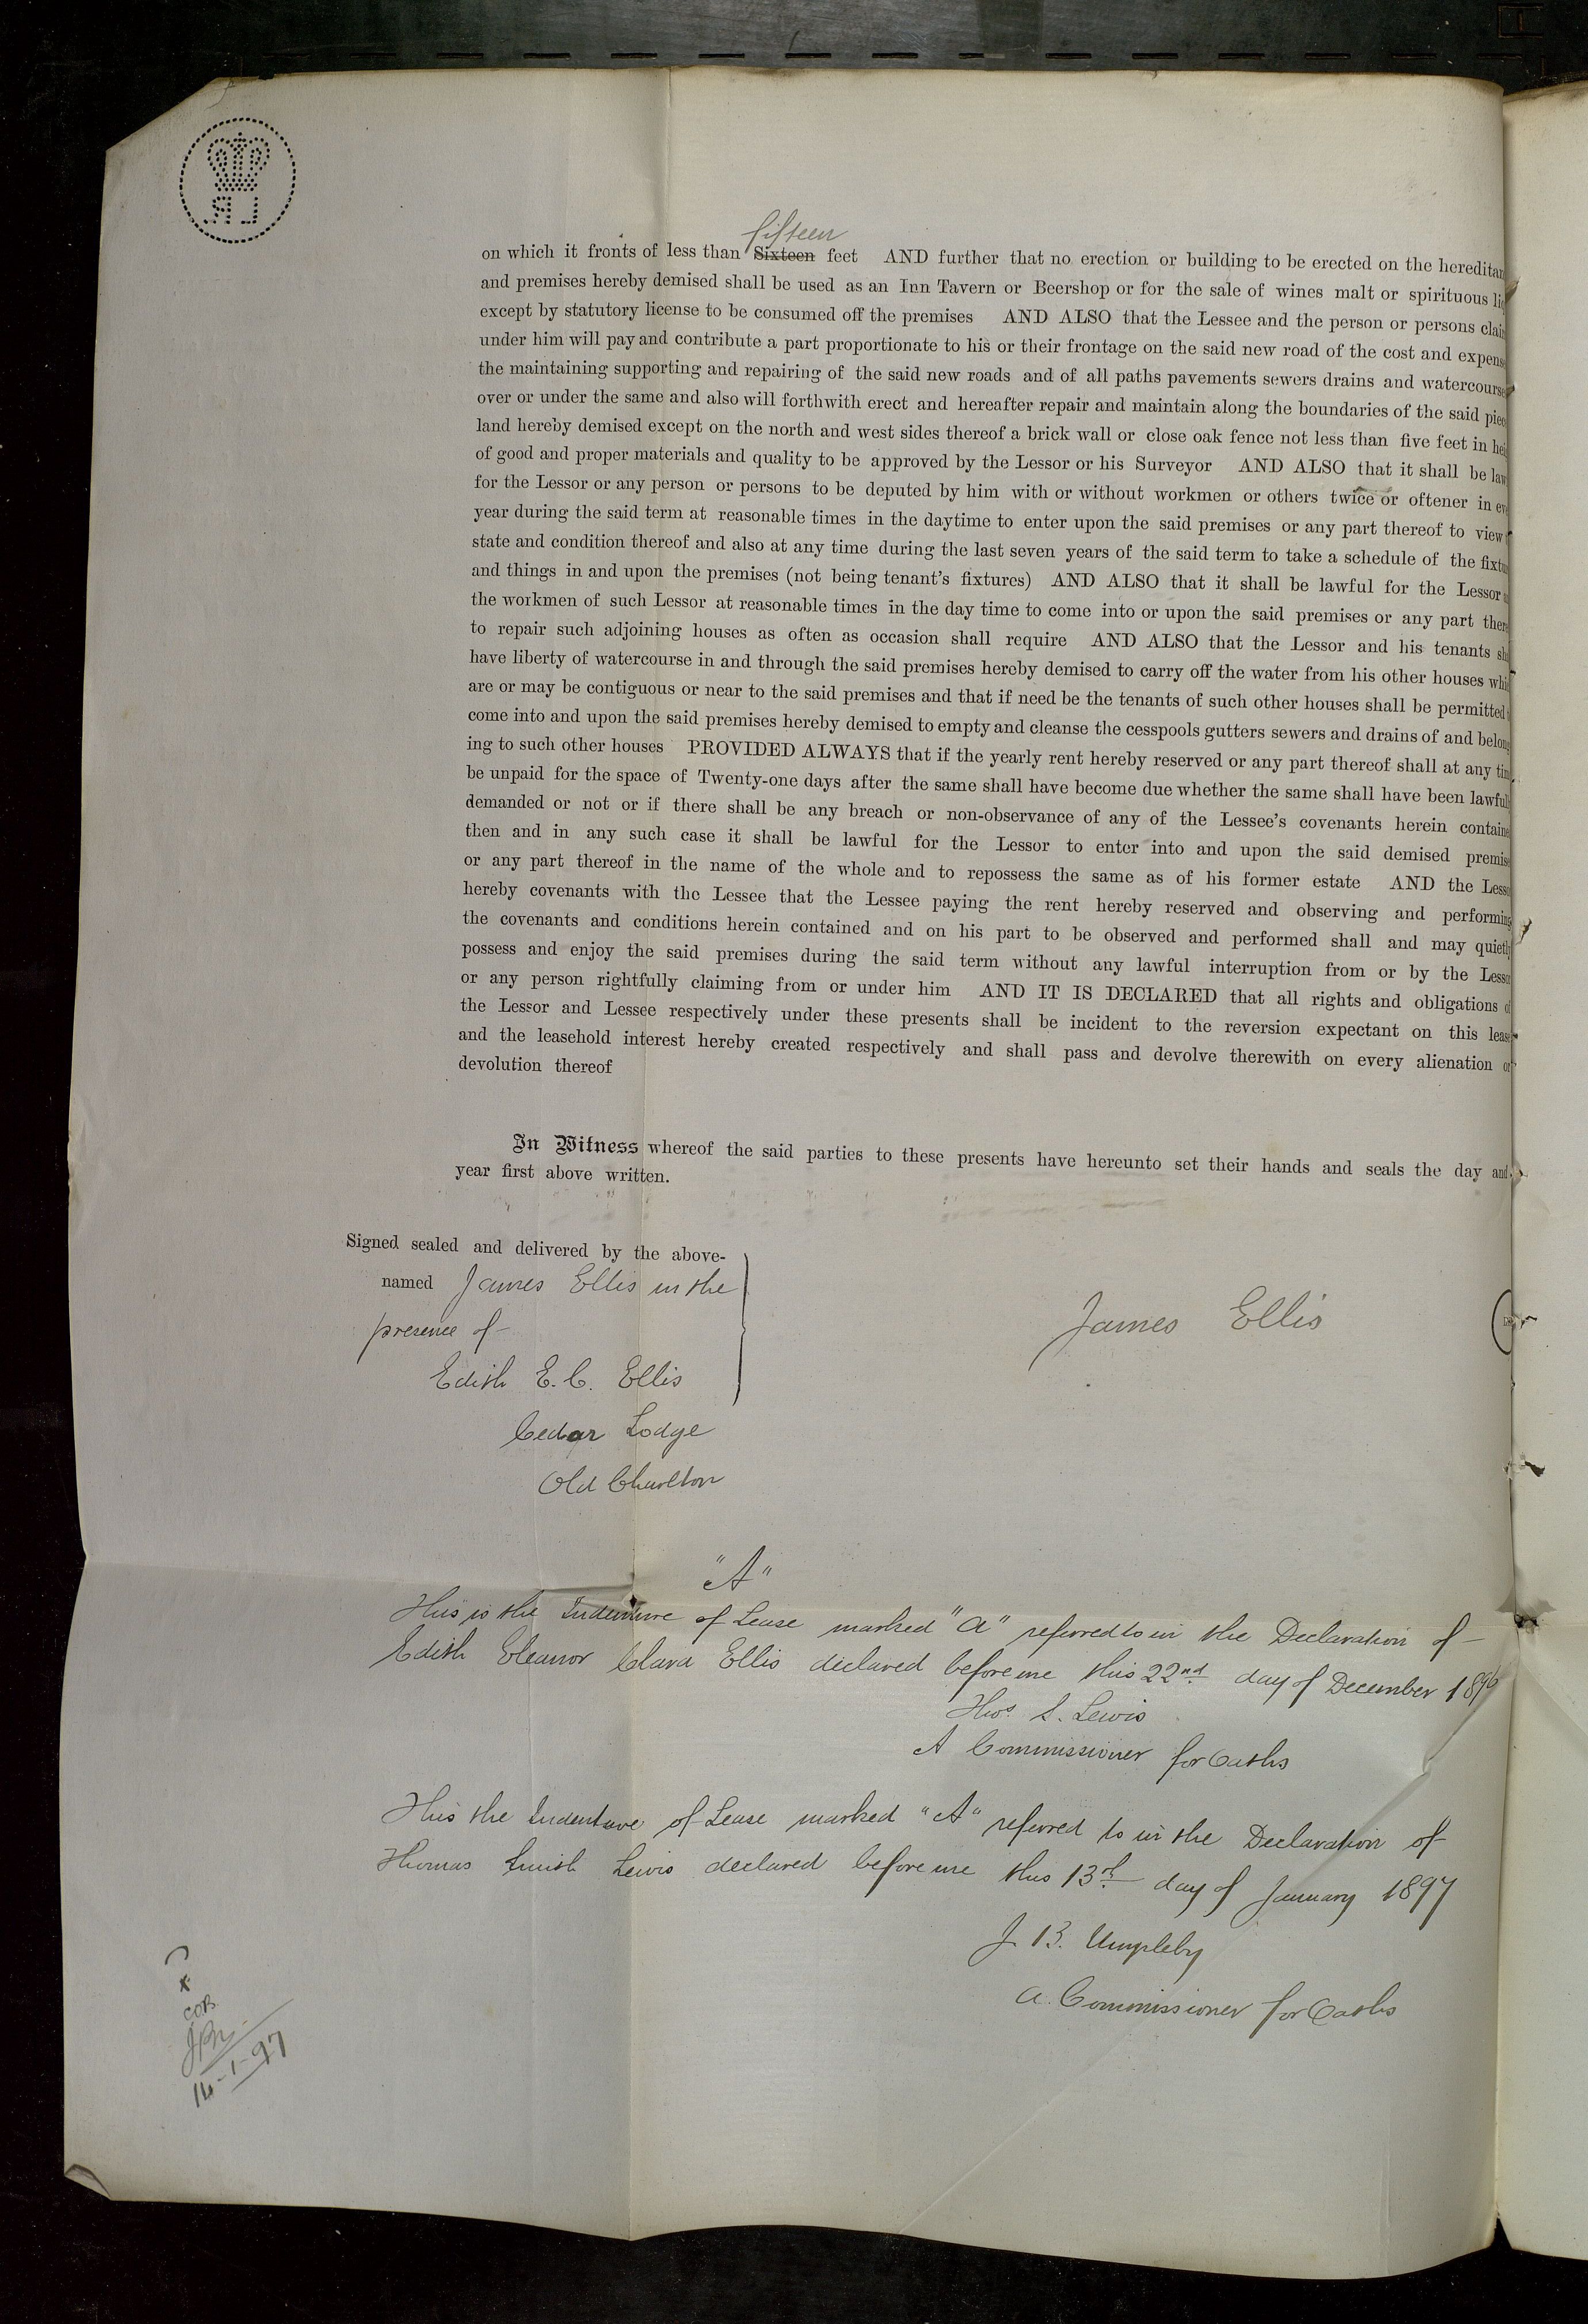 fifteen
on which it fronts of less than Sixteen feet AND further that no erection or building to be erected on the hereditam
and premises hereby demised shall be used as an Inn Tavern or Beershop or for the sale of wines malt or spirituous liq
except by statutory license to be consumed off the premises AND ALSO that the Lessee and the person or persons claim
under him will pay and contribute a part proportionate to his or their frontage on the said new road of the cost and expense
the maintaining supporting and repairing of the said new roads and of all paths pavements sewers drains and watercourse
over or under the same and also will forthwith erect and hereafter repair and maintain along the boundaries of the said piec
land hereby demised except on the north and west sides thereof a brick wall or close oak fence not less than five feet in hei
of good and proper materials and quality to be approved by the Lessor or his Surveyor AND ALSO that it shall be law
for the Lessor or any person or persons to be deputed by him with or without workmen or others twice or oftener in eve
year during the said term at reasonable times in the daytime to enter upon the said premises or any part thereof to view
state and condition thereof and also at any time during the last seven years of the said term to take a schedule of the fixtu
and things in and upon the premises (not being tenant's fixtures) AND ALSO that it shall be lawful for the Lessor
the workmen of such Lessor at reasonable times in the day time to come into or upon the said premises or any part there
to repair such adjoining houses as often as occasion shall require AND ALSO that the Lessor and his tenants sha
have liberty of watercourse in and through the said premises hereby demised to carry off the water from his other houses whic
are or may be contiguous or near to the said premises and that if need be the tenants of such other houses shall be permitted
come into and upon the said premises hereby demised to empty and cleanse the cesspools gutters sewers and drains of and belong
ing to such other houses PROVIDED ALWAYS that if the yearly rent hereby reserved or any part thereof shall at any tim
be unpaid for the space of Twenty-one days after the same shall have become due whether the same shall have been lawfull
demanded or not or if there shall be any breach or non-observance of any of the Lessee's covenants herein containe
then and in any such case it shall be lawful for the Lessor to enter into and upon the said demised premise
or any part thereof in the name of the whole and to repossess the same as of his former estate AND the Lesso
hereby covenants with the Lessee that the Lessee paying the rent hereby reserved and observing and performing
the covenants and conditions herein contained and on his part to be observed and performed shall and may quietly
possess and enjoy the said premises during the said term without any lawful interruption from or by the Lesso
or any person rightfully claiming from or under him AND IT IS DECLARED that all rights and obligations of
the Lessor and Lessee respectively under these presents shall be incident to the reversion expectant on this lease
and the leasehold interest hereby created respectively and shall pass and devolve therewith on every alienation or
devolution thereof
In Witness whereof the said parties to these presents have hereunto set their hands and seals the day and
year first above written.
Signed sealed and delivered by the above-
named James Ellis in the
presence of
James Ellis
Edith E. C. Ellis
Cedar Lodge
Old Charlton
"A"
This is the Indenture of Lease marked "A" referred to in the Declaration of
Edith Eleanor Clara Ellis declared before me this 22nd day of December 1896
Thos. S. Lewis
A Commissioner for Oaths
This the Indenture of Lease marked "A" referred to in the Declaration of
Thomas Smith Lewis declared before me this 13th day of January 1897
J. B. Umpleby
A Commissioner for Oaths
COB